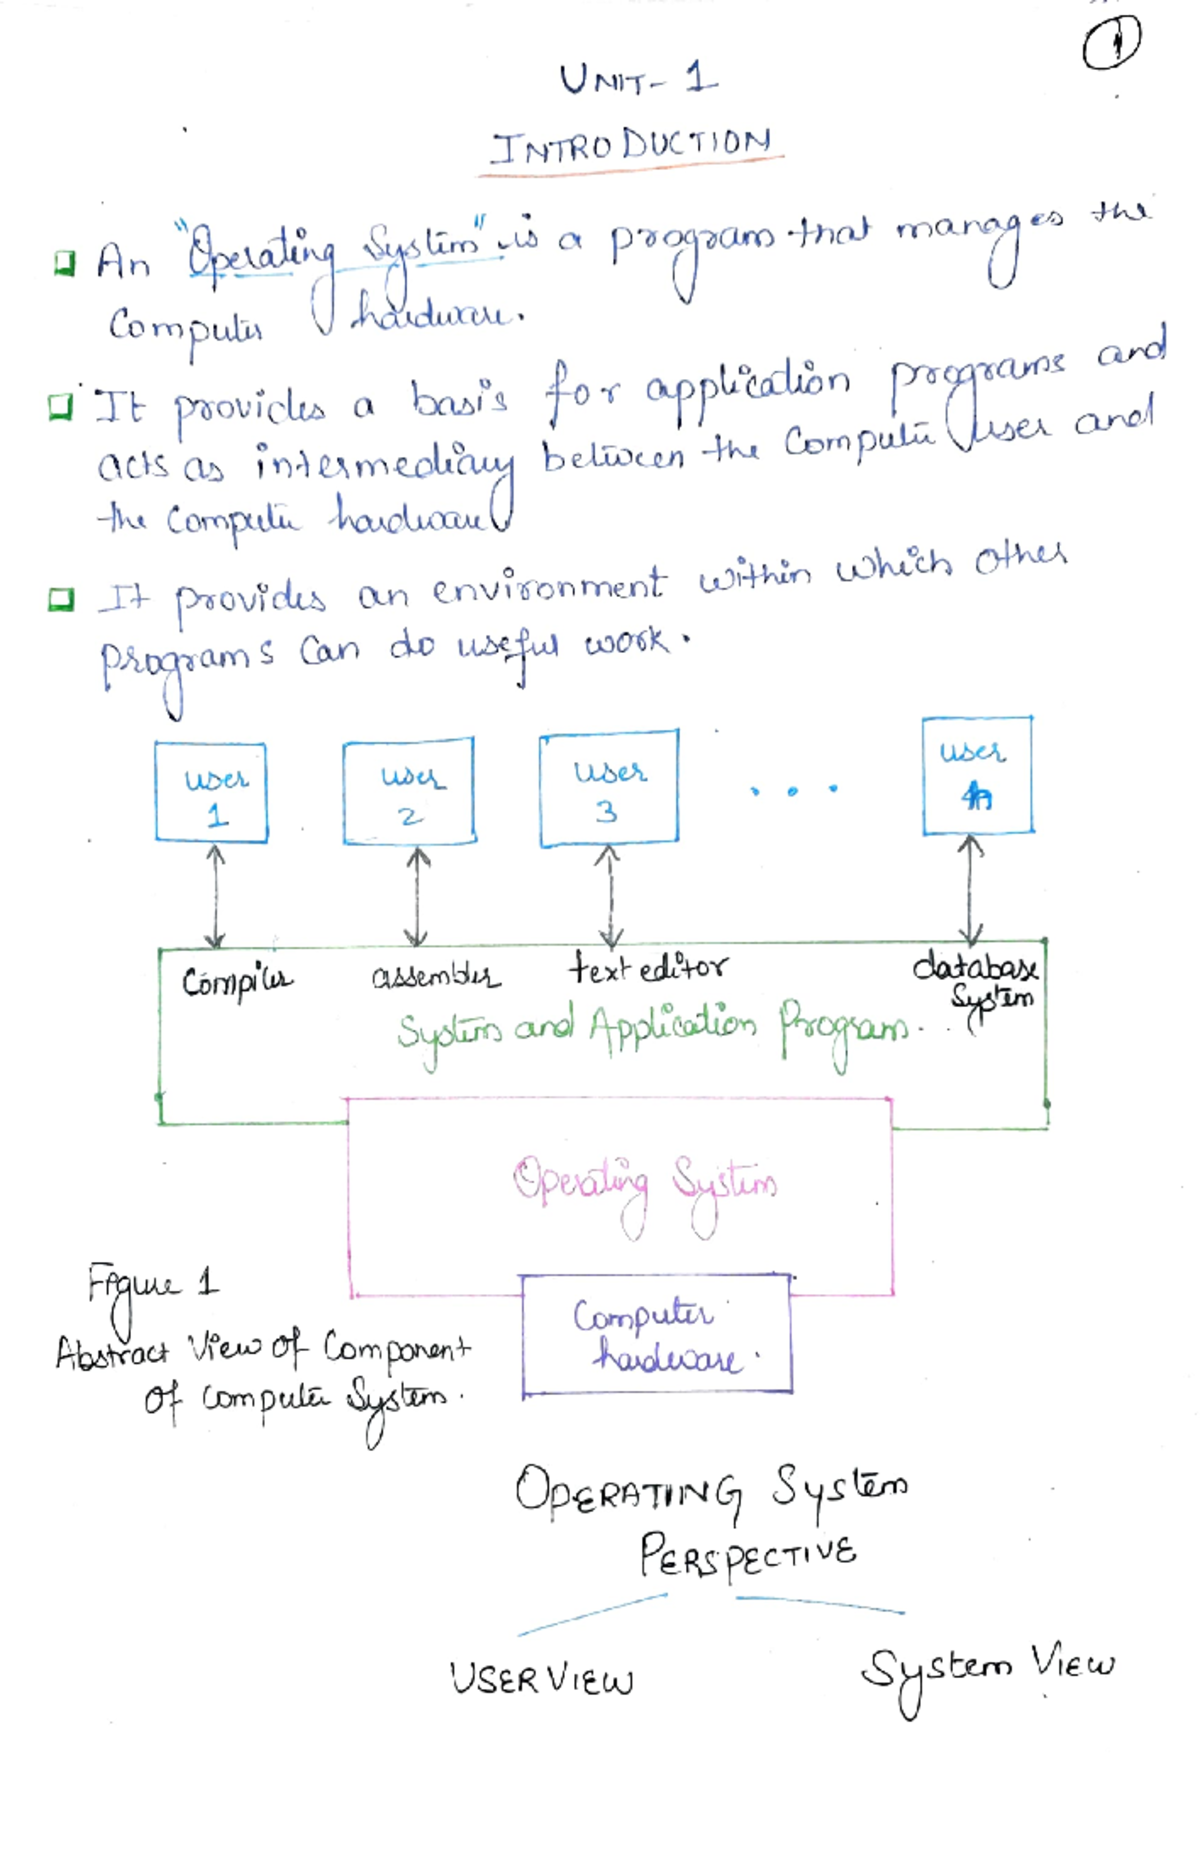 1
UNIT- 1
INTRODUCTION
An "Operating System" is a program that manages the
Computer hardware.
It provides a basis for application programs and
acts as intermediary between the Computer user and
the Computer hardware
It provides an environment within which other
programs can do useful work.
user user user . . . user
1 2 3 n
Compiler assembler text editor database
System
System and Application Program. . .
Operating System
Figure 1
Computer
hardware.
Abstract View of Component
of Computer System.
OPERATING System
PERSPECTIVE
USER VIEW System VIEW